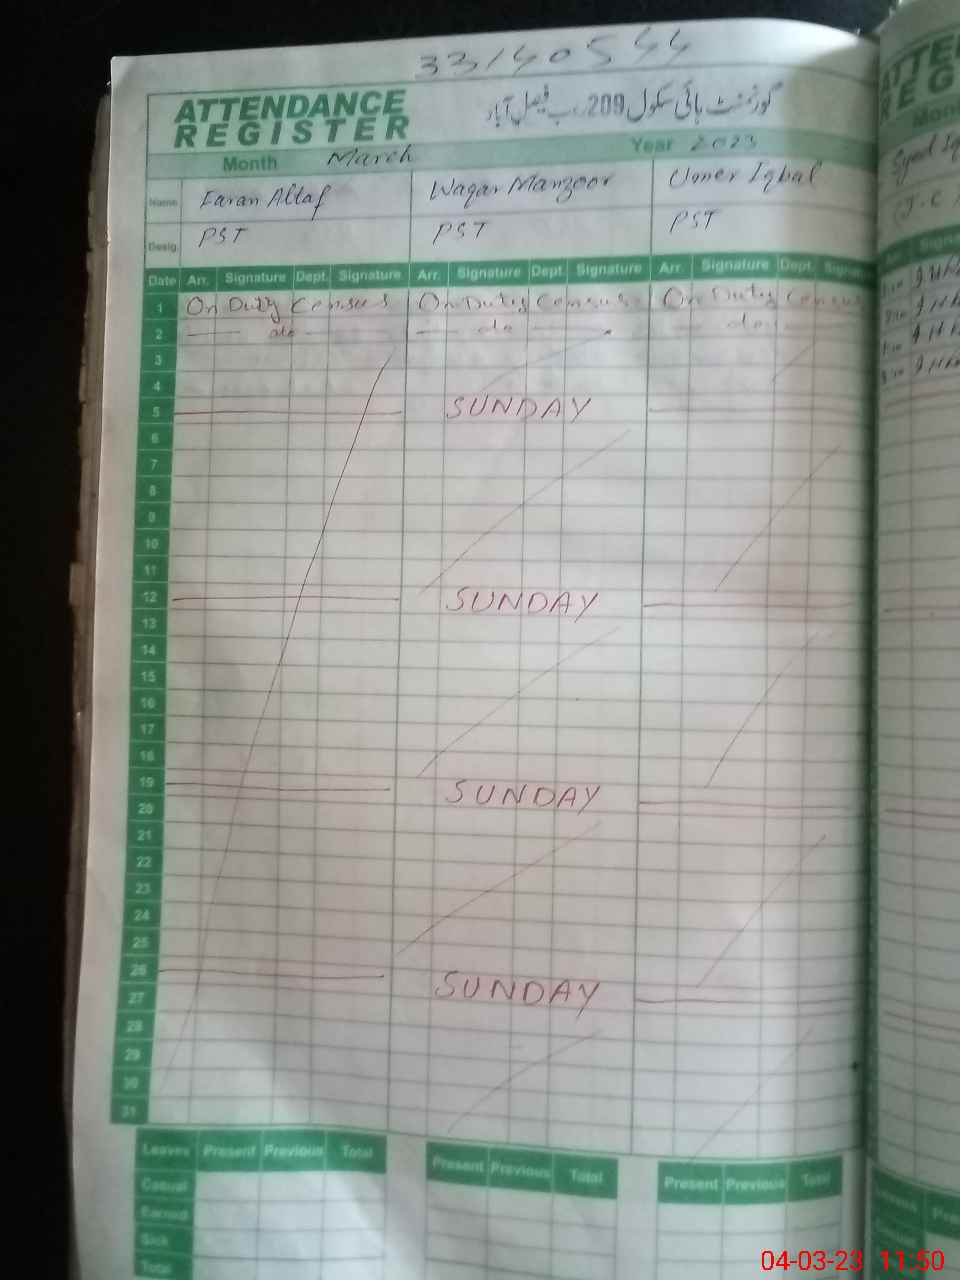 33140544
ATTENDANCE REGISTER
گورنمنٹ ہائی سکول 209 ر ب فیصل آباد
Month March Year 2023
Name Faran Altaf Waqar Manzoor Umer Iqbal
Desig. PST PST PST
Date Arr. Signature Dept. Signature Arr. Signature Dept. Signature Arr. Signature Dept. Signature
1 On Duty Census On Duty Census On Duty Census
2 do do do
3
4
5 SUNDAY
6
7
8
9
10
11
12 SUNDAY
13
14
15
16
17
18
19 SUNDAY
20
21
22
23
24
25
26 SUNDAY
27
28
29
30
31
Leaves Present Previous Total Present Previous Total Present Previous Total
Casual
Earned
Sick
Total
04-03-23 11:50